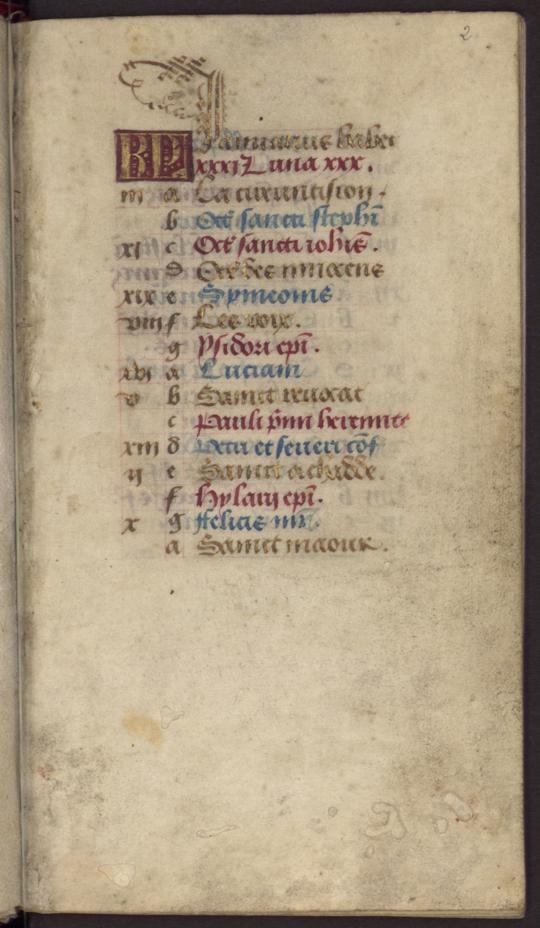 2
KL Januarius habet
xxxi Luna xxx.
iii a La circuncision.
b Oct̄ sancti stephī
xi c Oct̄ sancti iohīs.
d Oct̄ des innocens
xix e Symeonis
viii f Les roix.
g Ysidori ep̄i.
xvi a Luciani
v b Sainct
c Pauli p̄mi heremite
xiii d et seueri cōf
ii e Sainct
f Hylarij ep̄i.
x g ffelicis m̄r.
a Sainct maour.